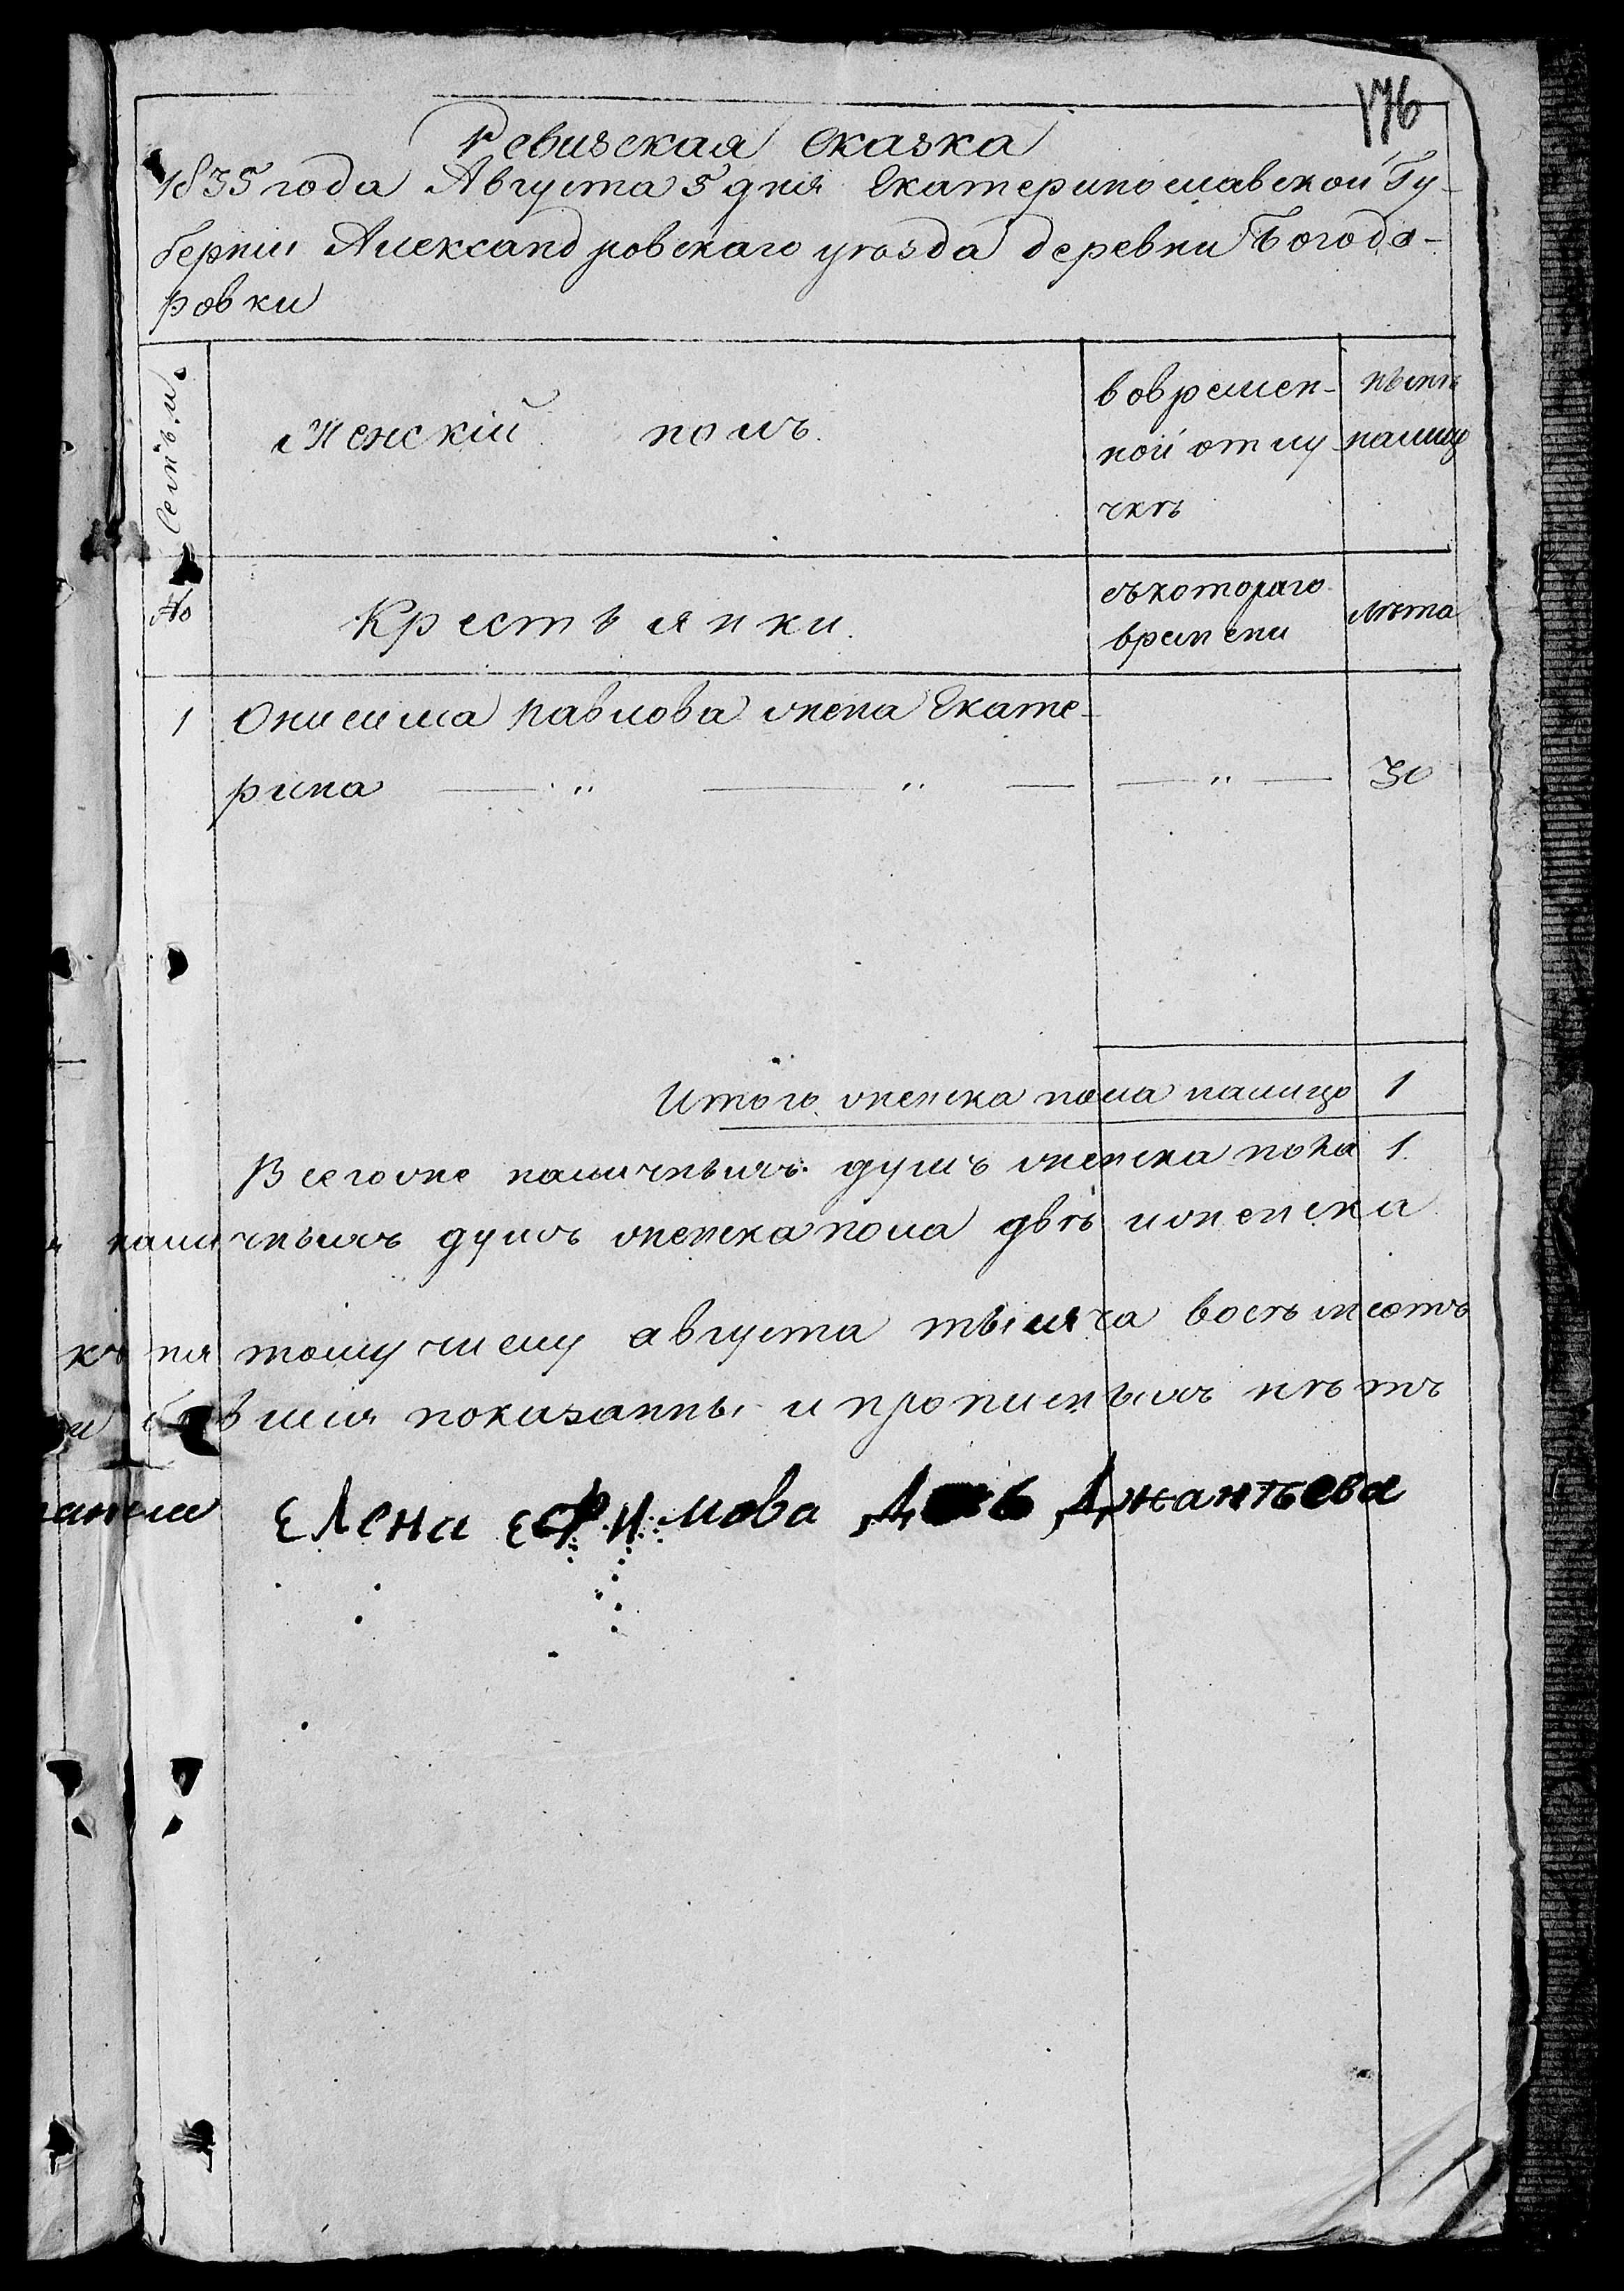 176
Ревизская Сказка
1835 года Августа 5 дня Екатеринославской Гу-
берніи Александровскаго уѣзда деревни Богода-
ровки
Семьи
Женскій полъ.
вовремен-
ной отлу
чкѣ
нынѣ
налицо
№
Крестьянки.
съкотораго
времени
Лѣта
1 Онисима Павлова жена Екате-
рина — „ — „ — — „ — 30
Итого женска пола налицо 1
Всегоже наличныхъ душъ женска пола 1.
наличныхъ душъ женска пола двѣ иженска
къ пятому числу августа тысяча восемьсотъ
показанны и прописныхъ нѣтъ
Елена ефимова Джантѣева